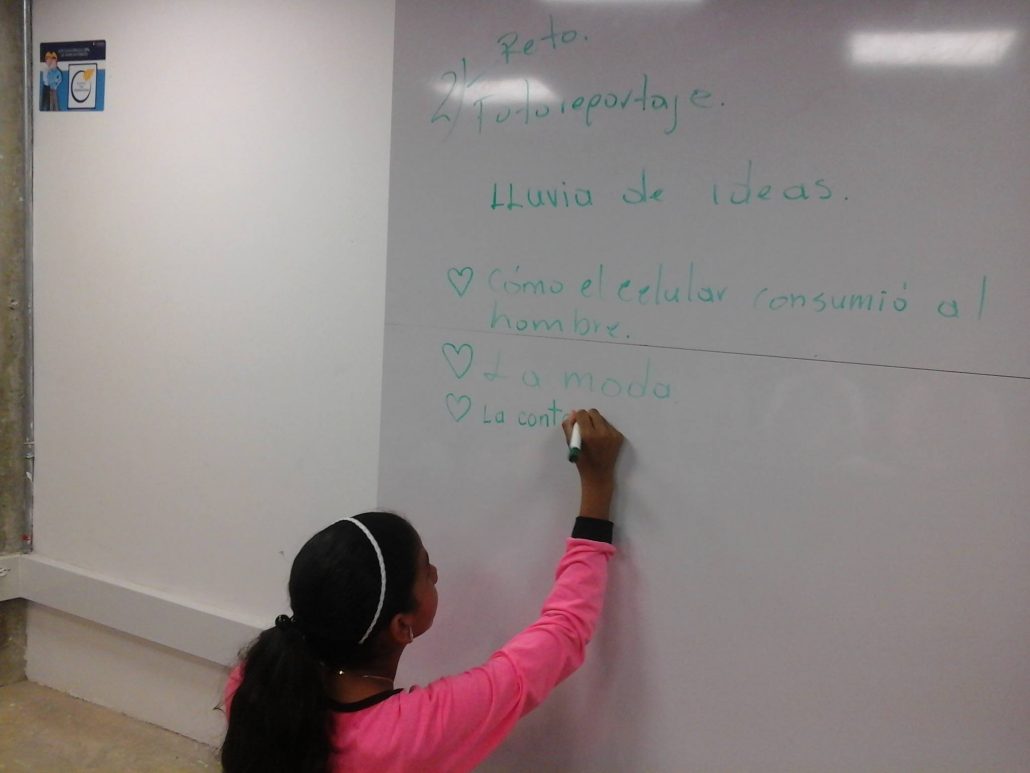 Reto.
2) Fotoreportaje.
LLuvia de ideas.
♡ Cómo el celular consumió al
hombre.
♡ La moda.
♡ La conta